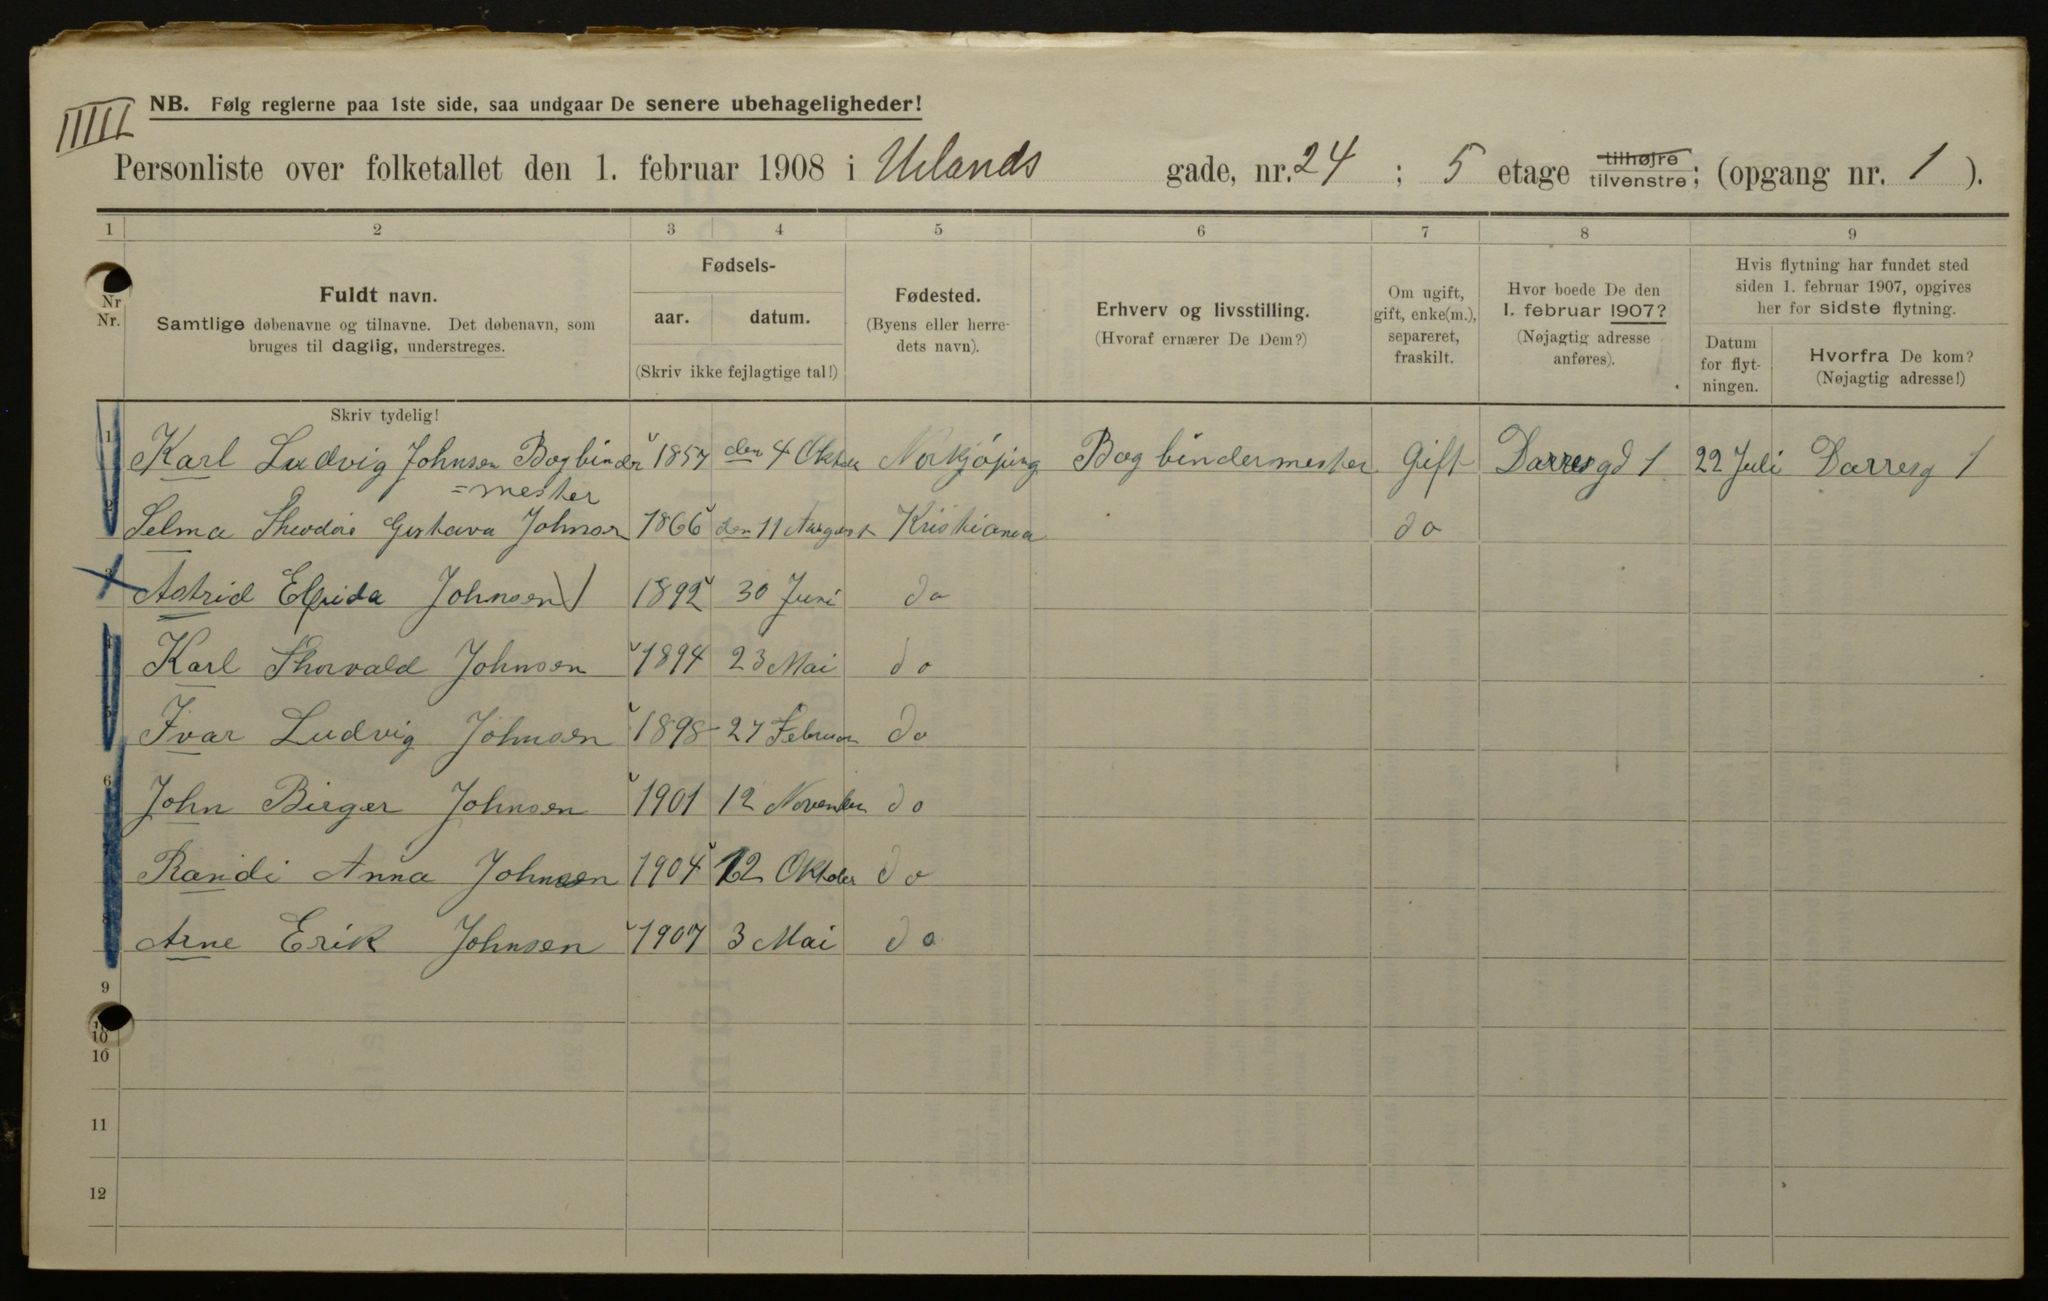 NB. Følg reglerne paa 1ste side, saa undgaar De senere ubehageligheder!
Personliste over folketallet den 1. februar 1908 i Uelands gade, nr. 24 ; 5 etage tilhøjre tilvenstre; (opgang nr. 1 ).
1 2 3 4 5 6 7 8 9
Nr Nr.
Fuldt navn.
Samtlige døbenavne og tilnavne. Det døbenavn, som
bruges til daglig, understreges.
Skriv tydelig!
Fødsels-
aar. datum.
(Skriv ikke fejlagtige tal!)
Fødested.
(Byens eller herre-
dets navn).
Erhverv og livsstilling.
(Hvoraf ernærer De Dem?)
Om ugift,
gift, enke(m.),
separeret,
fraskilt.
Hvor boede De den
1. februar 1907?
(Nøjagtig adresse
anføres).
Hvis flytning har fundet sted
siden 1. februar 1907, opgives
her for sidste flytning.
Datum
for flyt-
ningen.
Hvorfra De kom?
(Nøjagtig adresse!)
1 Karl Ludvig Johnsen Bogbinder 1857 den 4 Oktober Norkjöping Bogbindermester Gift Darresgd 1 22 Juli Darresg 1
=mester
2 Selma Theodore Gustava Johnsen 1866 den 11 August Kristiania do
3 Astrid Johnsen 1892 30 Juni do
4 Karl Thorvald Johnsen 1894 23 Mai do
5 Ivar Ludvig Johnsen 1898 27 Februar do
6 John Birger Johnsen 1901 12 November do
7 Randi Anna Johnsen 1904 12 Oktober do
8 Arne Erik Johnsen 1907 3 Mai do
9
10
10
11
12